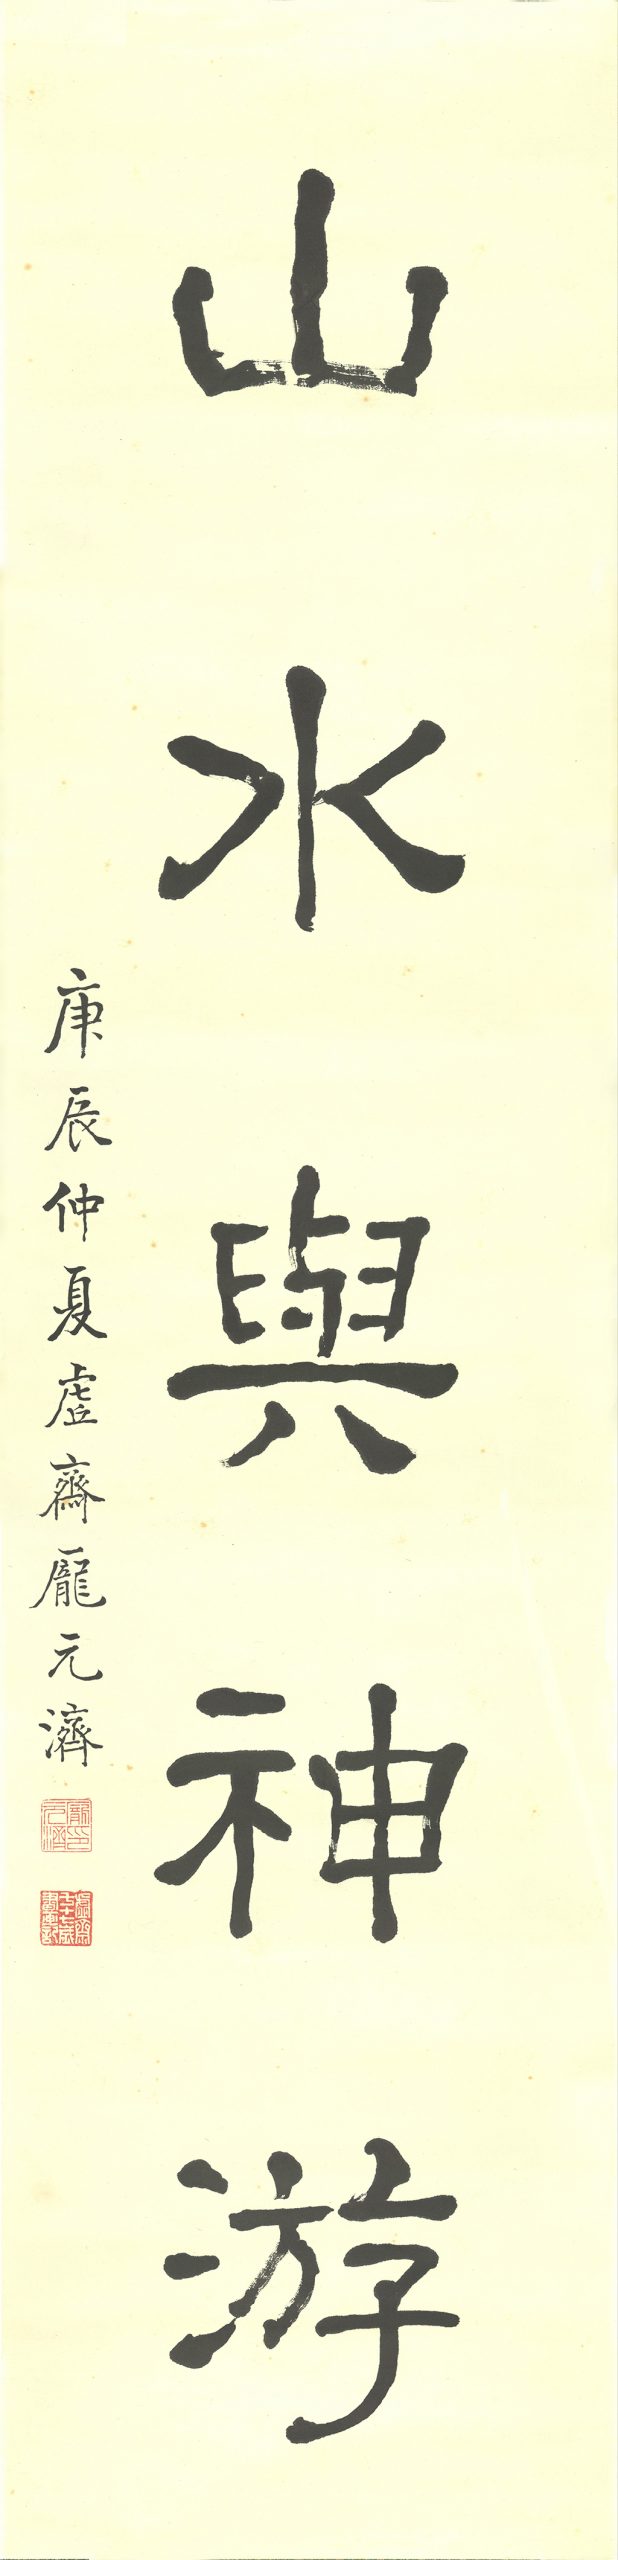 山水與神游
庚辰仲夏虛齋龐元濟